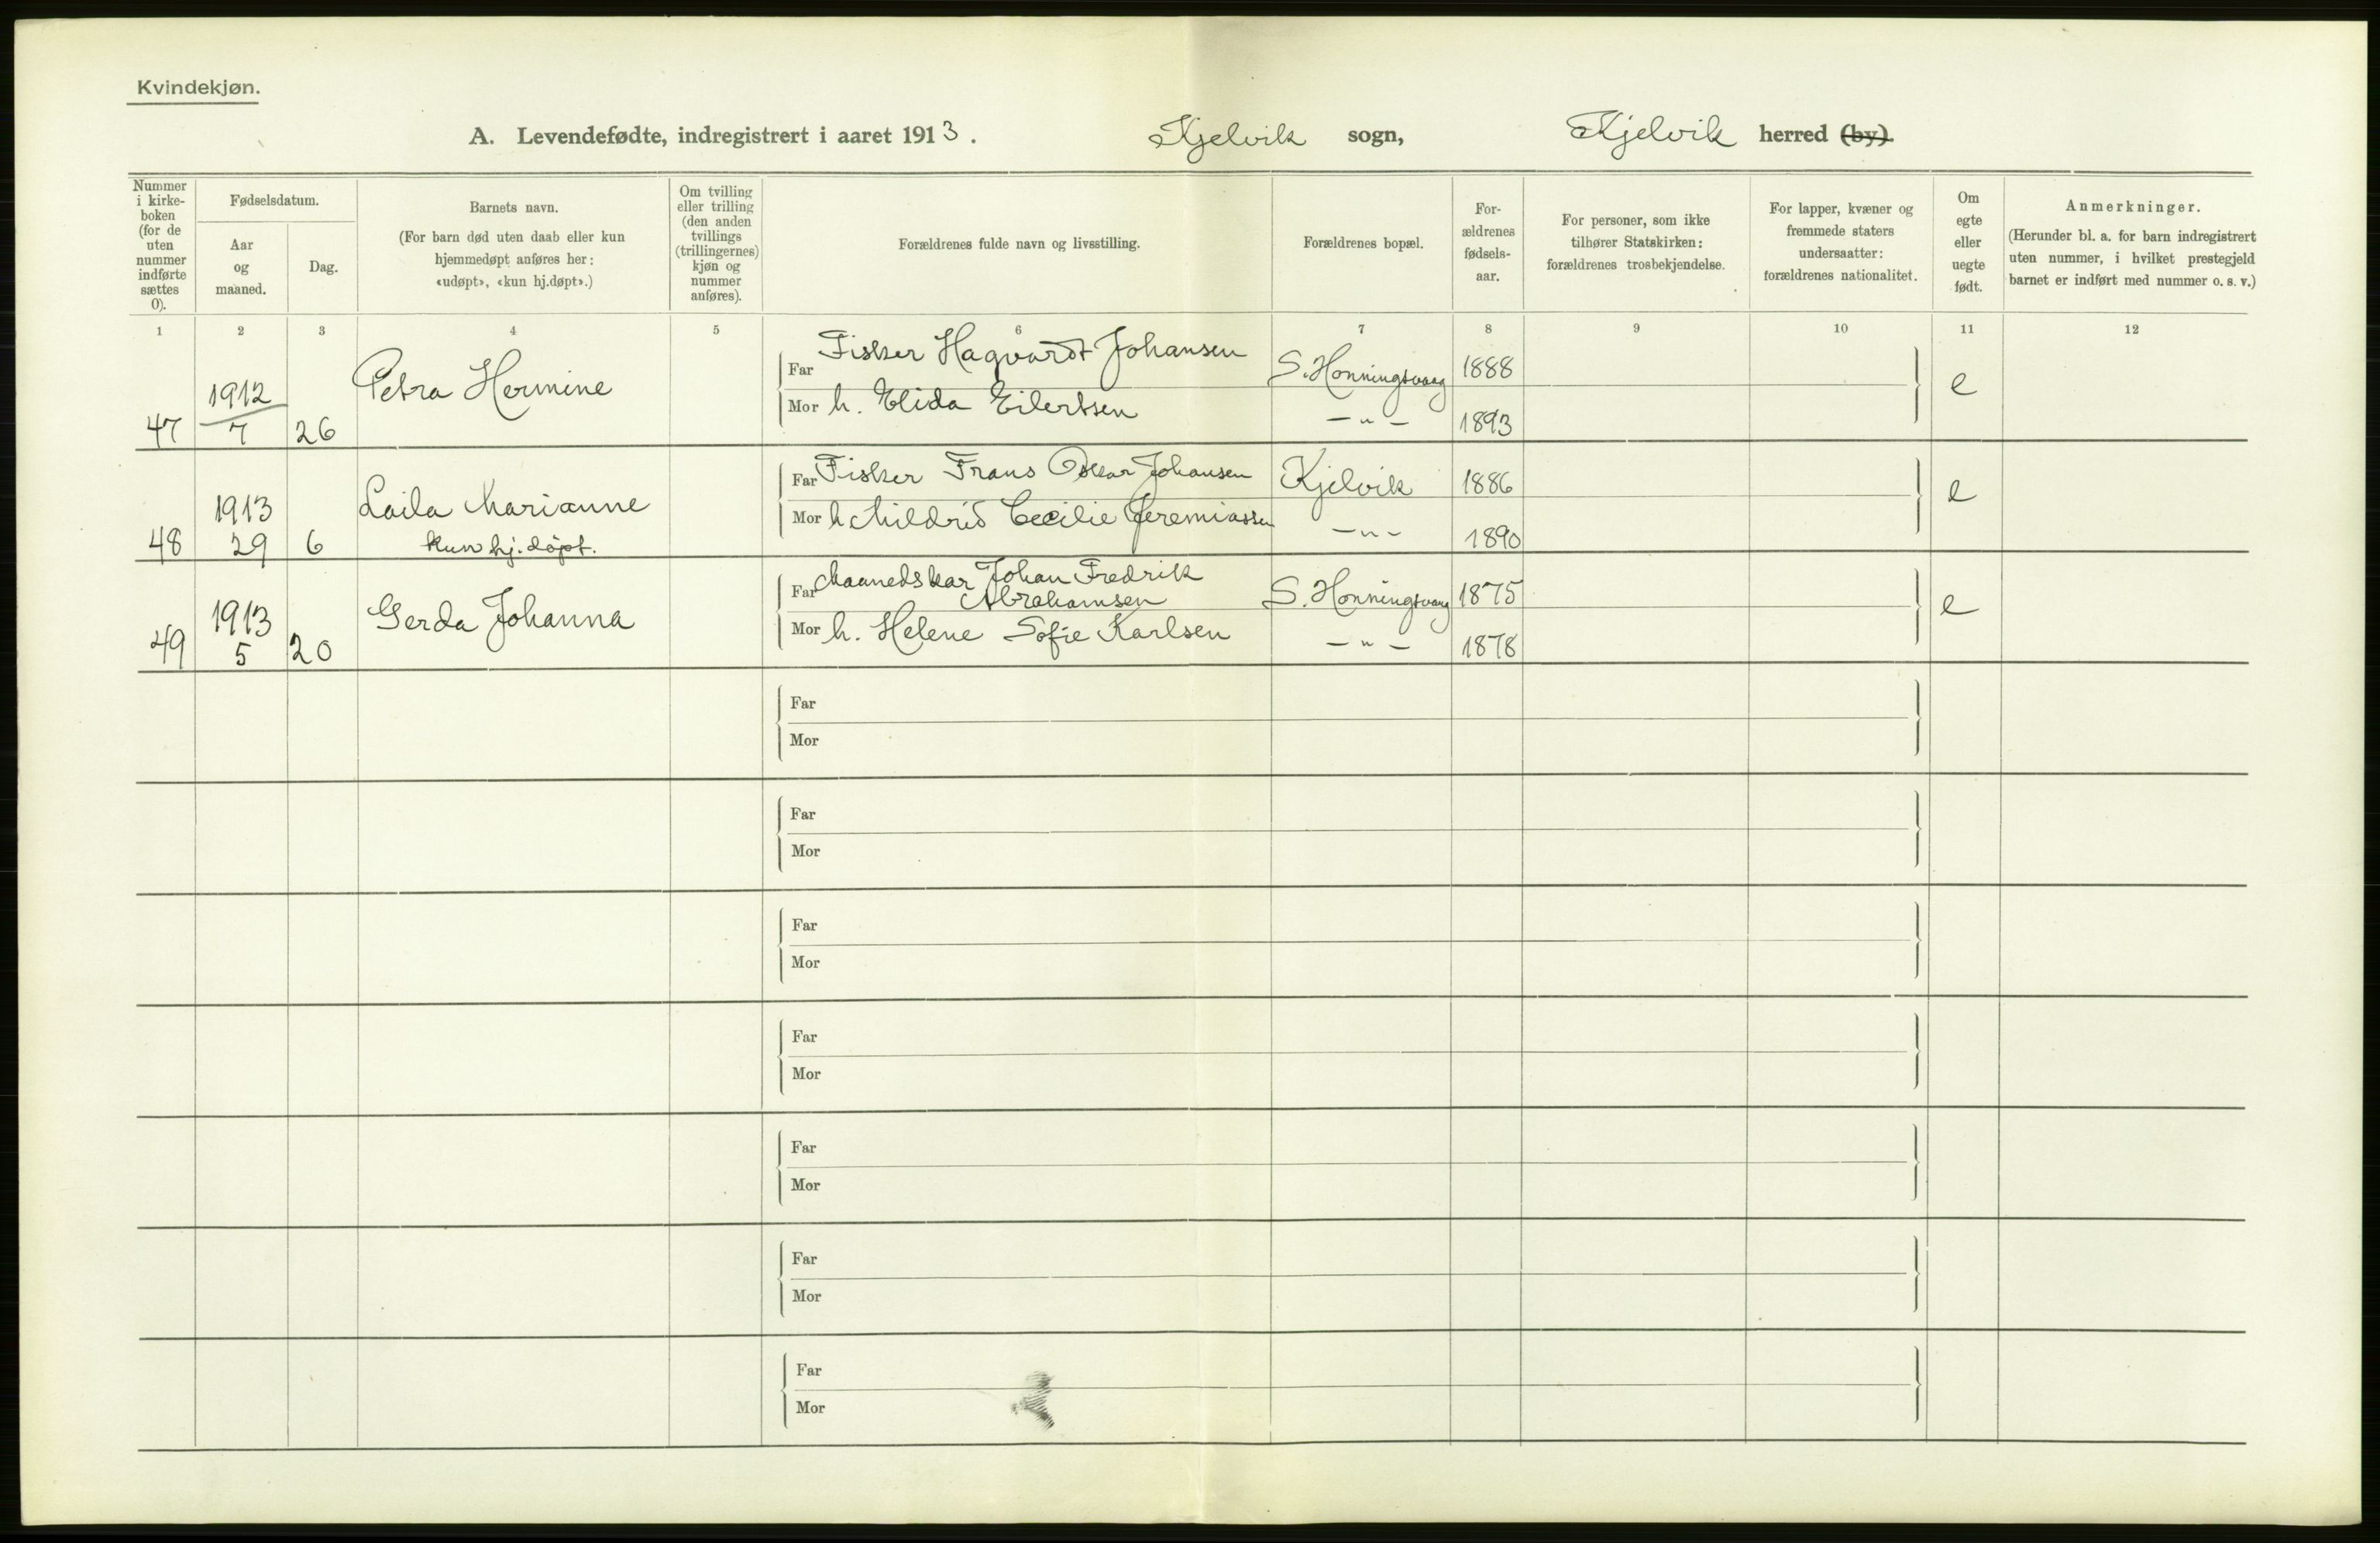 Kvindekjøn.
A. Levendefødte, indregistrert i aaret 1913. Kjelvik sogn, Kjelvik herred (by).
Nummer i kirke-boken (for de uten nummer indførte sættes 0).
Fødselsdatum.
Aar og maaned.
Dag.
Barnets navn.
(For barn død uten daab eller kun hjemmedøpt anføres her: «udøpt», «kun hj.døpt».)
Om tvilling eller trilling (den anden tvillings (trillingernes) kjøn og nummer anføres).
Forældrenes fulde navn og livsstilling.
Forældrenes bopæl.
For-ældrenes fødsels-aar.
For personer, som ikke tilhører Statskirken: forældrenes trosbekjendelse.
For lapper, kvæner og fremmede staters undersaatter: forældrenes nationalitet.
Om egte eller uegte født.
Anmerkninger.
(Herunder bl. a. for barn indregistrert uten nummer, i hvilket prestegjeld barnet er indført med nummer o. s. v.)
1 2 3 4 5 6 7 8 9 10 11 12
47 1912 7 26 Petra Hermine
Far Fisker Hagvardt Johansen S. Honningsvaag 1888 e
Mor h. Elida Eilertsen — " — 1893
48 1913 29 6 Laila Marianne
kun hj. døpt.
Far Fisker Frans Oskar Johansen Kjelvik 1886 e
Mor h Mildrid Cecilie Jeremiassen — " — 1890
49 1913 5 20 Gerda Johanna
Far Maanedskar Johan Fredrik
Abrahamsen S. Honningsvaag 1875 e
Mor h. Helene Sofie Karlsen — " — 1878
Far
Mor
Far
Mor
Far
Mor
Far
Mor
Far
Mor
Far
Mor
Far
Mor